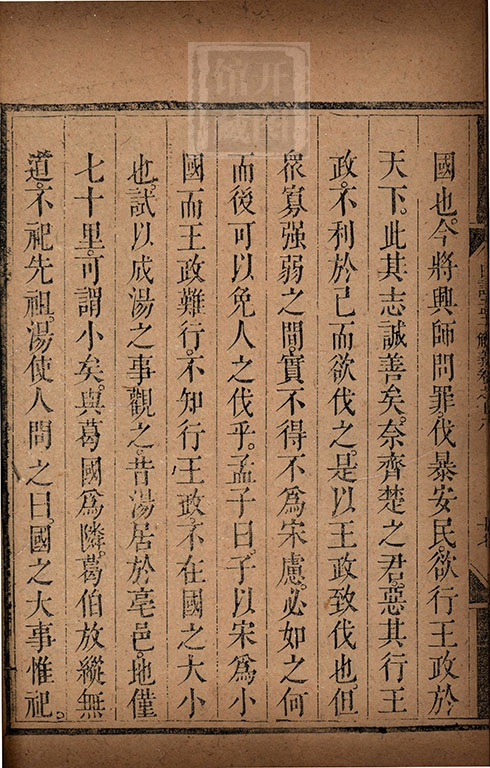 國也。今將興師問罪。伐暴安民。欲行王政於
天下。此其志誠善矣。奈齊楚之君。惡其行王
政。不利於己而欲伐之。是以王政致伐也。但
衆寡强弱之間。實不得不爲宋慮。必如之何
而後可以免人之伐乎。孟子曰。子以宋爲小
國而王政難行。不知行王政。不在國之大小
也。試以成湯之事觀之。昔湯居於亳邑。地僅
七十里。可謂小矣。與葛國爲隣。葛伯放縱無
道。不祀先祖。湯使人問之曰。國之大事惟祀。